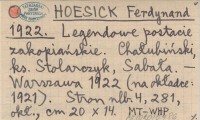 HOESICK Ferdynand
1922. Legendowe postacie
zakopiańskie. Chałubiński,
ks. Stolarczyk, Sabała. —
Warszawa 1922 (na okładce:
1921). Stron nlb 4, 281,
okł., cm 20 × 14. MT-WHP